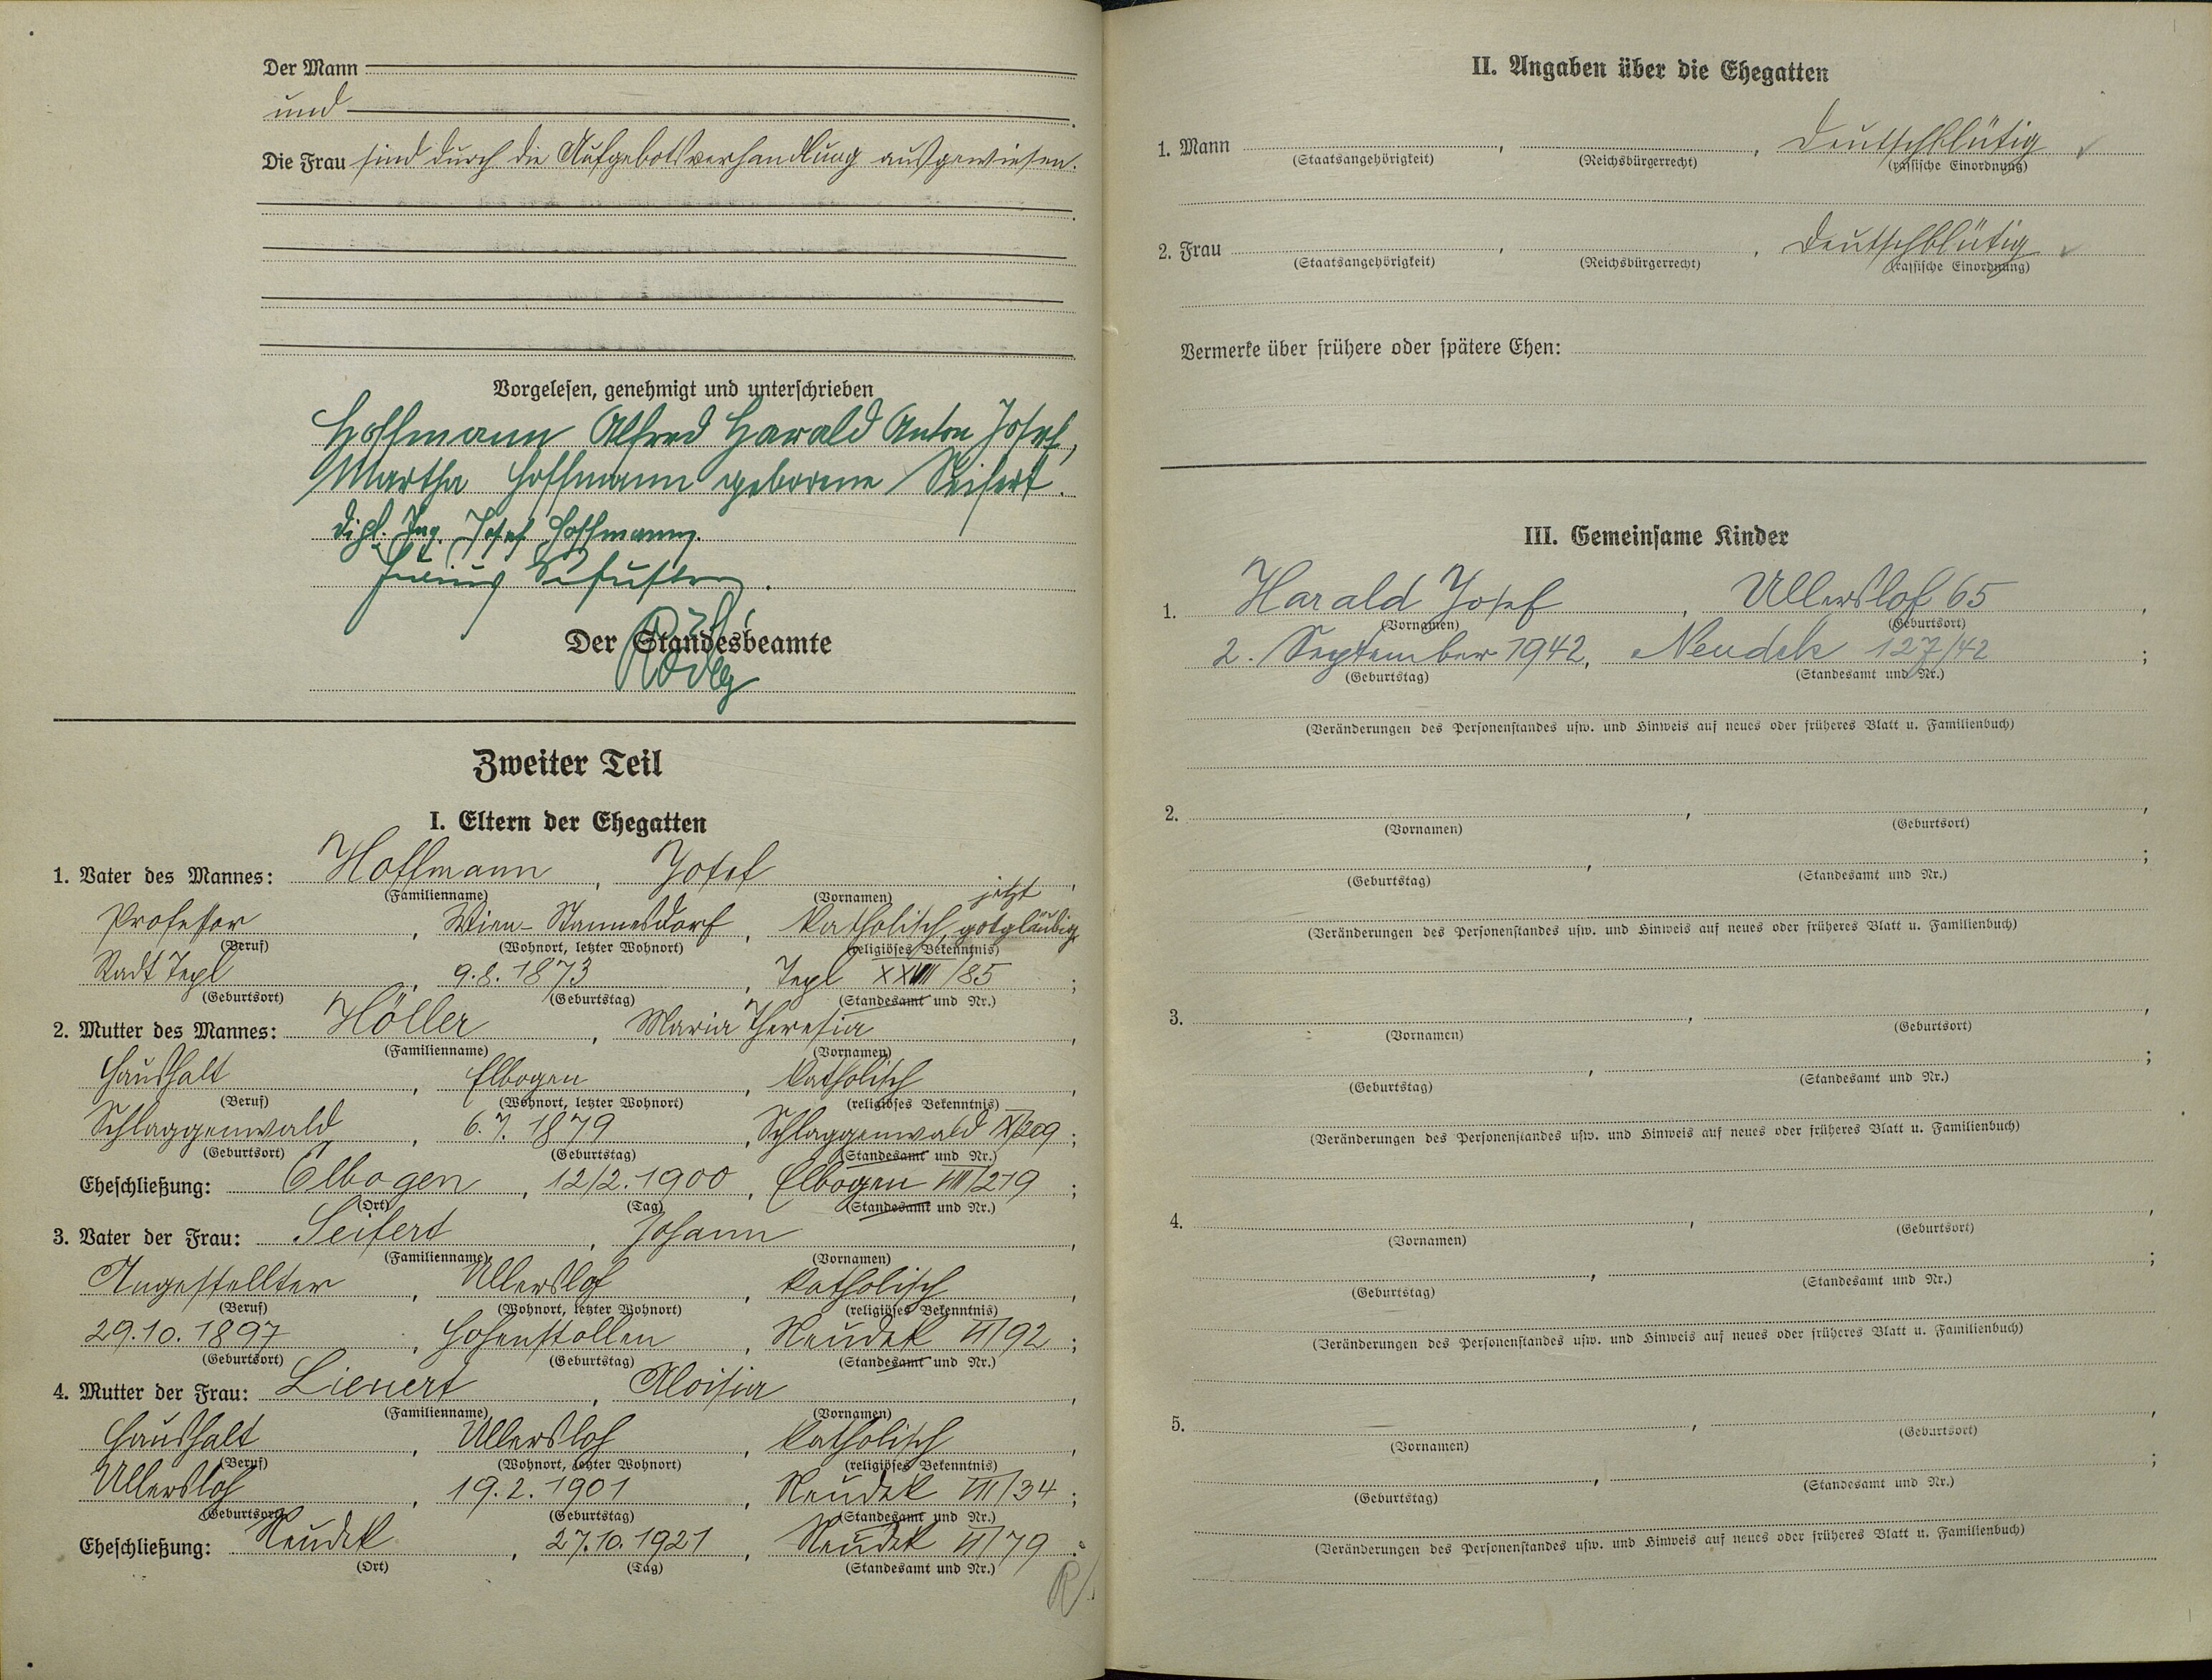 Der Mann
und
Die Frau sind durch die Aufgebotsverhandlung ausgewiesen.
Vorgelesen, genehmigt und unterschrieben
Hoffmann Alfred Harald Anton Josef,
Martha Hoffmann geborene Seifert.
Dipl. Ing. Josef Hoffmann.
Der Standesbeamte
Zweiter Teil
I. Eltern der Ehegatten
1. Vater des Mannes: Hoffmann, Josef,
(Familienname) (Vornamen) jetzt
Professor, Wien-, katholisch gotgläubig
(Beruf) (Wohnort, letzter Wohnort) (religiöses Bekenntnis)
Stadt Tepl, 9.8.1873, Tepl /85;
(Geburtsort) (Geburtstag) (Standesamt und Nr.)
2. Mutter des Mannes: Höller, Maria Theresia,
(Familienname) (Vornamen)
Haushalt, Elbogen, katholisch,
(Beruf) (Wohnort, letzter Wohnort) (religiöses Bekenntnis)
Schlaggenwald, 6.7.1879, Schlaggenwald /209;
(Geburtsort) (Geburtstag) (Standesamt und Nr.)
Eheschließung: Elbogen, 12/2.1900, Elbogen VIII/219;
(Ort) (Tag) (Standesamt und Nr.)
3. Vater der Frau: Seifert, Johann,
(Familienname) (Vornamen)
Angestellter, Ullersloh, katholisch,
(Beruf) (Wohnort, letzter Wohnort) (religiöses Bekenntnis)
29.10.1897, Hohenstollen, Neudek VI/92;
(Geburtsort) (Geburtstag) (Standesamt und Nr.)
4. Mutter der Frau: Lienert, Aloisia,
(Familienname) (Vornamen)
Haushalt, Ullersloh, katholisch,
(Beruf) (Wohnort, letzter Wohnort) (religiöses Bekenntnis)
Ullersloh, 19.2.1901, Neudek VII/34;
(Geburtsort) (Geburtstag) (Standesamt und Nr.)
Eheschließung: Neudek, 27.10.1921, Neudek VI/79.
(Ort) (Tag) (Standesamt und Nr.)
II. Angaben über die Ehegatten
1. Mann , , Deutschblütig
(Staatsangehörigkeit) (Reichsbürgerrecht) (rassische Einordnung)
2. Frau , , Deutschblütig
(Staatsangehörigkeit) (Reichsbürgerrecht) (rassische Einordnung)
Vermerke über frühere oder spätere Ehen:
III. Gemeinsame Kinder
1. Harald Josef, Ullersloh 65,
(Vornamen) (Geburtsort)
2. September 1942, Neudek 127/42;
(Geburtstag) (Standesamt und Nr.)
(Veränderungen des Personenstandes usw. und Hinweis auf neues oder früheres Blatt u. Familienbuch)
2. , ,
(Vornamen) (Geburtsort)
, ;
(Geburtstag) (Standesamt und Nr.)
(Veränderungen des Personenstandes usw. und Hinweis auf neues oder früheres Blatt u. Familienbuch)
3. , ,
(Vornamen) (Geburtsort)
, ;
(Geburtstag) (Standesamt und Nr.)
(Veränderungen des Personenstandes usw. und Hinweis auf neues oder früheres Blatt u. Familienbuch)
4. , ,
(Vornamen) (Geburtsort)
, ;
(Geburtstag) (Standesamt und Nr.)
(Veränderungen des Personenstandes usw. und Hinweis auf neues oder früheres Blatt u. Familienbuch)
5. , ,
(Vornamen) (Geburtsort)
, ;
(Geburtstag) (Standesamt und Nr.)
(Veränderungen des Personenstandes usw. und Hinweis auf neues oder früheres Blatt u. Familienbuch)